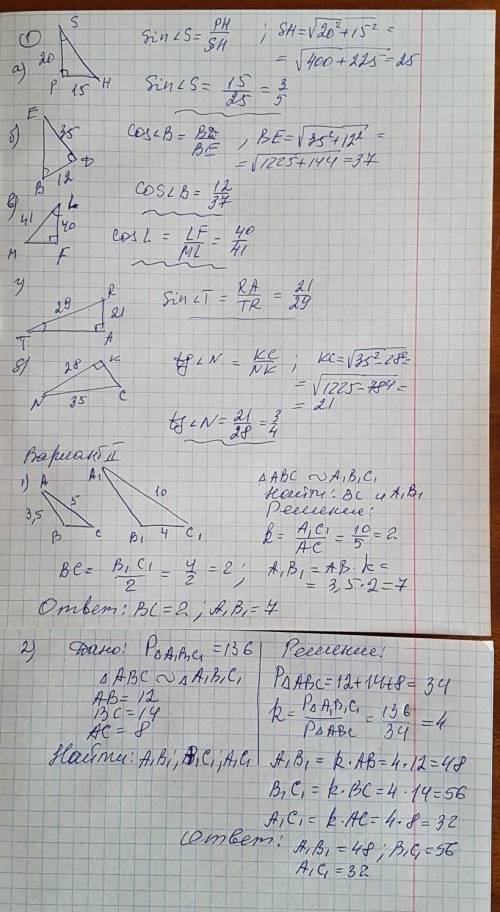 ①
а)
S
20
P 15 H
Sin∠S = PH/SH ; SH = √20² + 15² =
= √400 + 225 = 25
Sin∠S = 15/25 = 3/5
б)
E
35
D
B 12
cos∠B = BD/BE , BE = √35² + 12² =
= √1225 + 144 = 37
cos∠B = 12/37
в)
L
41
40
M F
cos L = LF/ML = 40/41
г)
R
29
21
T A
Sin∠T = RA/TR = 21/29
д)
K
28
N 35 C
tg∠N = KC/NK ; KC = √35² - 28² =
= √1225 - 784 =
= 21
tg∠N = 21/28 = 3/4
Вариант II
1)
A
5
3,5
B C
A₁
10
B₁ 4 C₁
△ABC ∼ A₁B₁C₁
Найти: BC и A₁B₁
Решение:
k = A₁C₁/AC = 10/5 = 2
BC = B₁C₁/2 = 4/2 = 2 ; A₁B₁ = AB · k =
= 3,5 · 2 = 7
Ответ: BC = 2 ; A₁B₁ = 7
2) Дано: P△A₁B₁C₁ = 136
△ABC ∼ △A₁B₁C₁
AB = 12
BC = 14
AC = 8
Найти: A₁B₁; B₁C₁; A₁C₁
Решение:
P△ABC = 12 + 14 + 8 = 34
k = P△A₁B₁C₁/P△ABC = 136/34 = 4
A₁B₁ = k · AB = 4 · 12 = 48
B₁C₁ = k · BC = 4 · 14 = 56
A₁C₁ = k · AC = 4 · 8 = 32
Ответ: A₁B₁ = 48 ; B₁C₁ = 56
A₁C₁ = 32